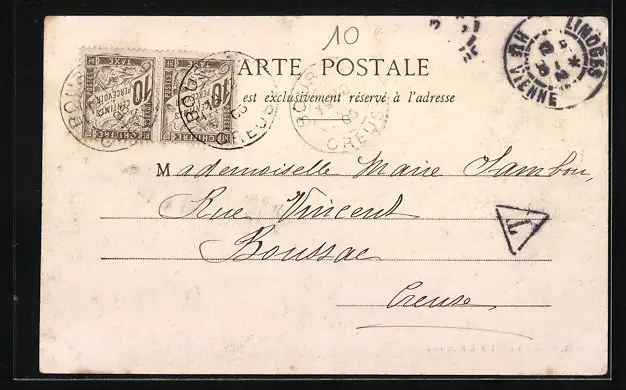 10
CARTE POSTALE
est exclusivement réservé à l'adresse
LIMOGES
HTE VIENNE
10 CENTIMES A PERCEVOIR
CHIFFRE TAXE
POSTES
10
CHIFFRE TAXE
BOUSSAC
CREUSE
BOUSSAC
CREUSE
Mademoiselle Marie Jambon,
Rue Vincent
Boussac
Creuse
T